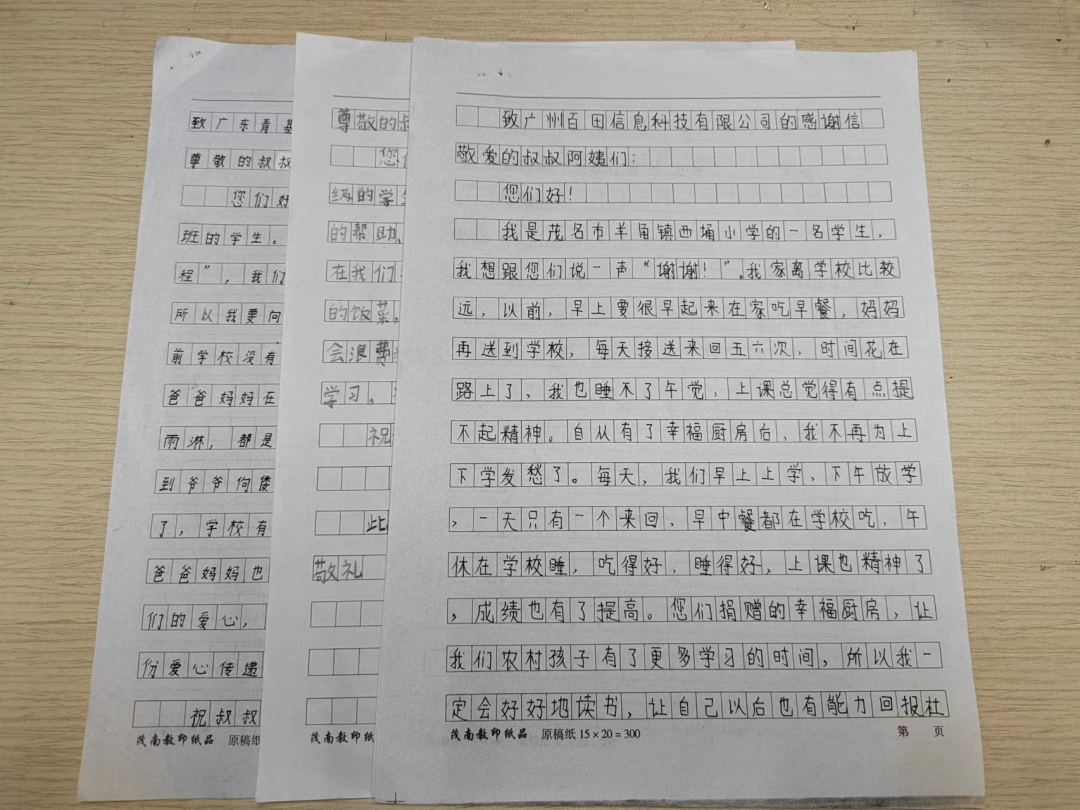 致广东青基
尊敬的叔叔
您们好
班的学生。
程”，我们
所以我要向
前学校没有
爸爸妈妈在
雨淋，都是
到爷爷佝偻
了，学校有
爸爸妈妈也
们的爱心，
份爱心传递
祝叔叔
茂南教印纸品 原稿纸
尊敬的叔
您们
级的学生
的帮助，
在我们
的饭菜。
会浪费
学习。
祝
此
敬礼
茂南教印纸
致广州百田信息科技有限公司的感谢信
敬爱的叔叔阿姨们：
您们好！
我是茂名市羊角镇西埇小学的一名学生，
我想跟您们说一声“谢谢！”。我家离学校比较
远，以前，早上要很早起来在家吃早餐，妈妈
再送到学校，每天接送来回五六次，时间花在
路上了，我也睡不了午觉，上课总觉得有点提
不起精神。自从有了幸福厨房后，我不再为上
下学发愁了。每天，我们早上上学，下午放学
，一天只有一个来回，早中餐都在学校吃，午
休在学校睡，吃得好，睡得好，上课也精神了
，成绩也有了提高。您们捐赠的幸福厨房，让
我们农村孩子有了更多学习的时间，所以我一
定会好好地读书，让自己以后也有能力回报社
茂南教印纸品 原稿纸 15×20=300 第 页